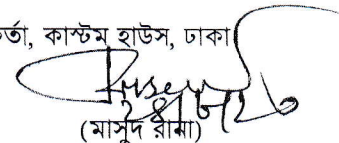 র্তা, কাস্টম হাউস, ঢাকা
(মাসুদ রানা)